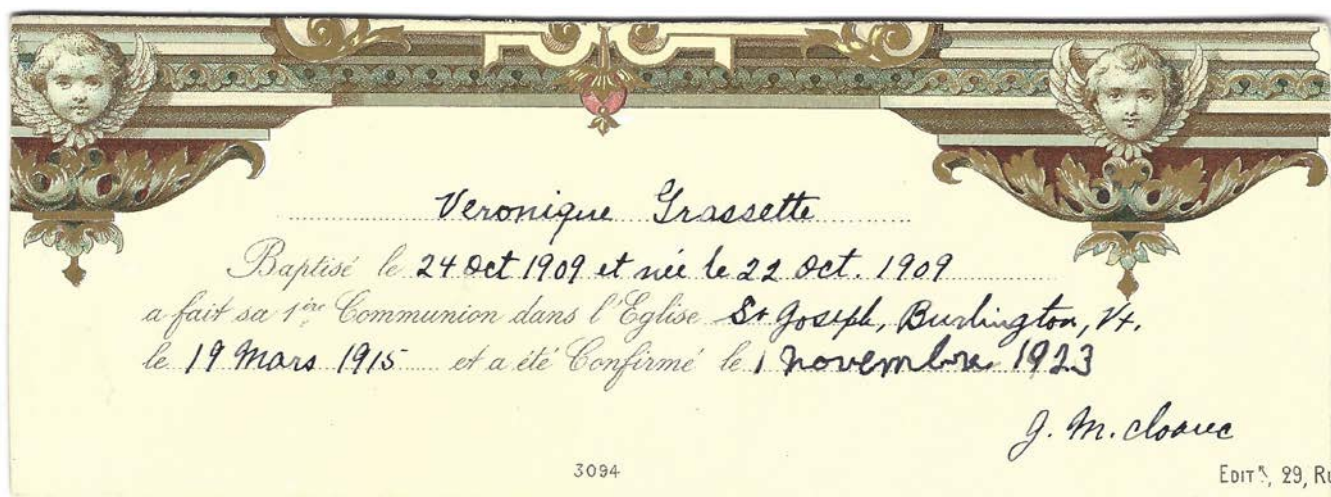 Veronique Grassette
Baptisé le 24 Oct 1909 et née le 22 Oct. 1909
a fait sa 1ère Communion dans l'Eglise St Joseph, Burlington, Vt.
le 19 Mars 1915 et a été Confirmé le 1 novembre 1923
J. M. Cloarec
3094
EDITR, 29, RU